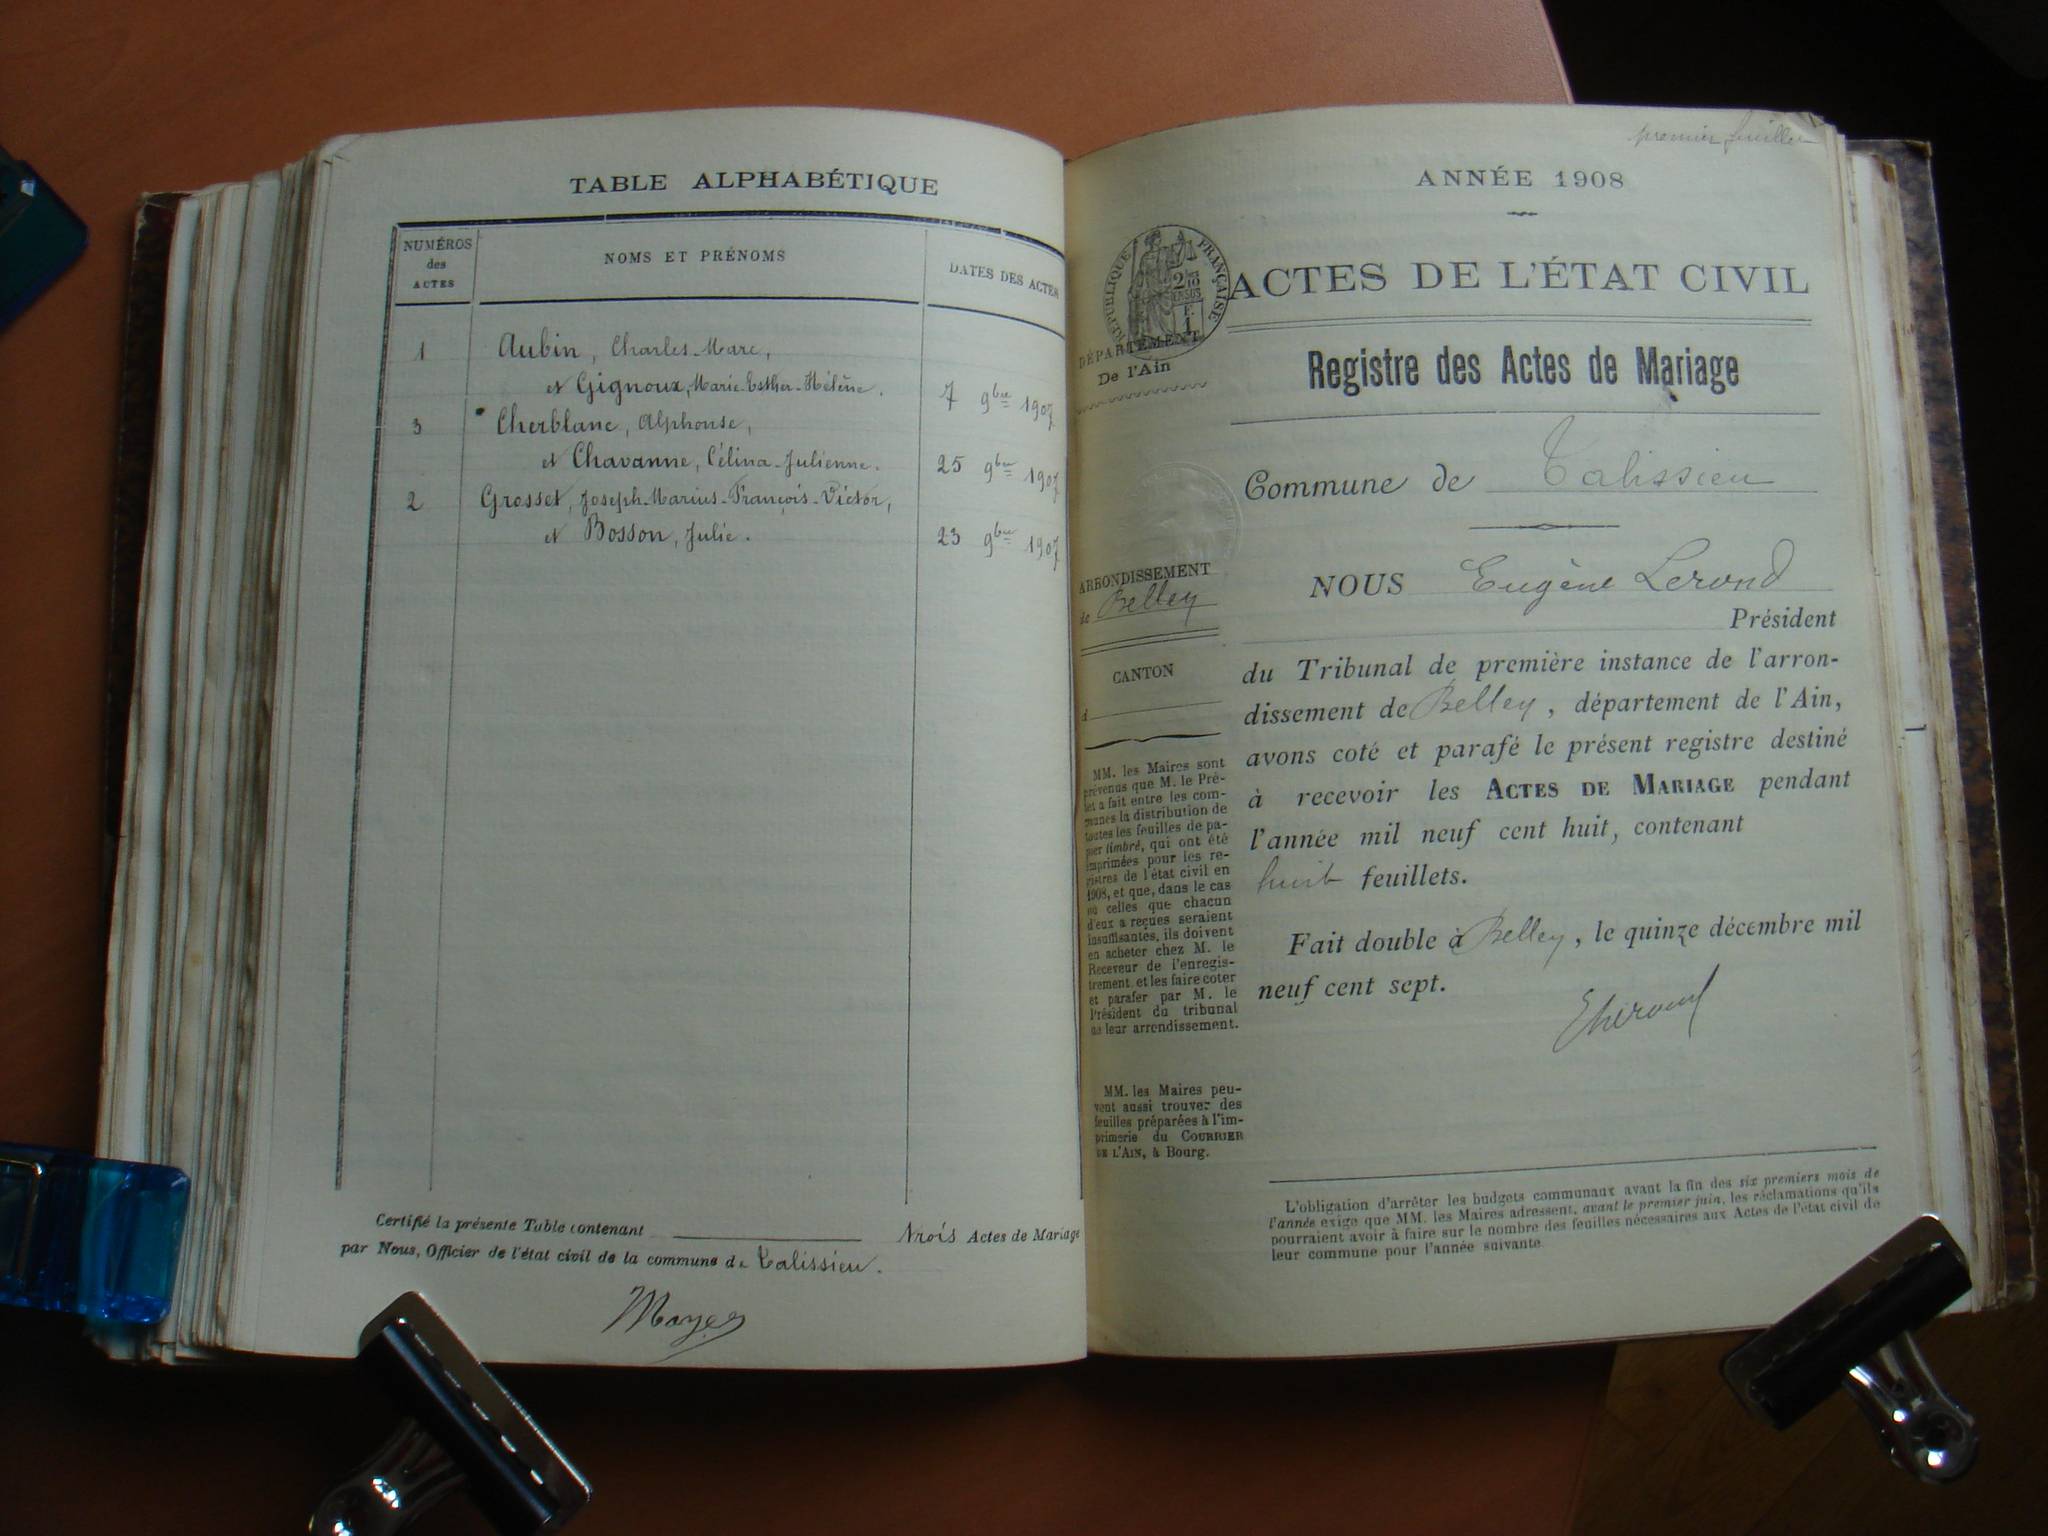 TABLE ALPHABÉTIQUE
NUMÉROS
des
ACTES
NOMS ET PRÉNOMS
DATES DES ACTES
1 Aubin, Charles-Marc,
et Gignoux, Marie-Esther-Hélène. 7 9bre 1907
3 Cherblanc, Alphonse,
et Chavanne, Célina-Julienne. 25 9bre 1907
2 Grosset, Joseph-Marius-François-Victor,
et Bosson, Julie. 23 9bre 1907
Certifié la présente Table contenant trois Actes de Mariage
par Nous, Officier de l'état civil de la commune de Talissieu.
premier feuillet
ANNÉE 1908
RÉPUBLIQUE FRANÇAISE
DÉPARTEMENT
De l'Ain
ACTES DE L'ÉTAT CIVIL
Registre des Actes de Mariage
Commune de Talissieu
ARRONDISSEMENT
de Belley
CANTON
d
MM. les Maires sont
prévenus que M. le Pré-
fet a fait entre les com-
munes la distribution de
toutes les feuilles de pa-
pier timbré, qui ont été
imprimées pour les re-
gistres de l'état civil en
1908, et que, dans le cas
où celles que chacun
d'eux a reçues seraient
insuffisantes, ils doivent
en acheter chez M. le
Receveur de l'enregis-
trement et les faire coter
et parafer par M. le
Président du tribunal
de leur arrondissement.
MM. les Maires peu-
vent aussi trouver des
feuilles préparées à l'im-
primerie du COURRIER
DE L'AIN, à Bourg.
NOUS Eugène Lerond
Président
du Tribunal de première instance de l'arron-
dissement de Belley, département de l'Ain,
avons coté et parafé le présent registre destiné
à recevoir les ACTES DE MARIAGE pendant
l'année mil neuf cent huit, contenant
huit feuillets.
Fait double à Belley, le quinze décembre mil
neuf cent sept.
L'obligation d'arrêter les budgets communaux avant la fin des six premiers mois de
l'année exige que MM. les Maires adressent, avant le premier juin, les réclamations qu'ils
pourraient avoir à faire sur le nombre des feuilles nécessaires aux Actes de l'état civil de
leur commune pour l'année suivante.